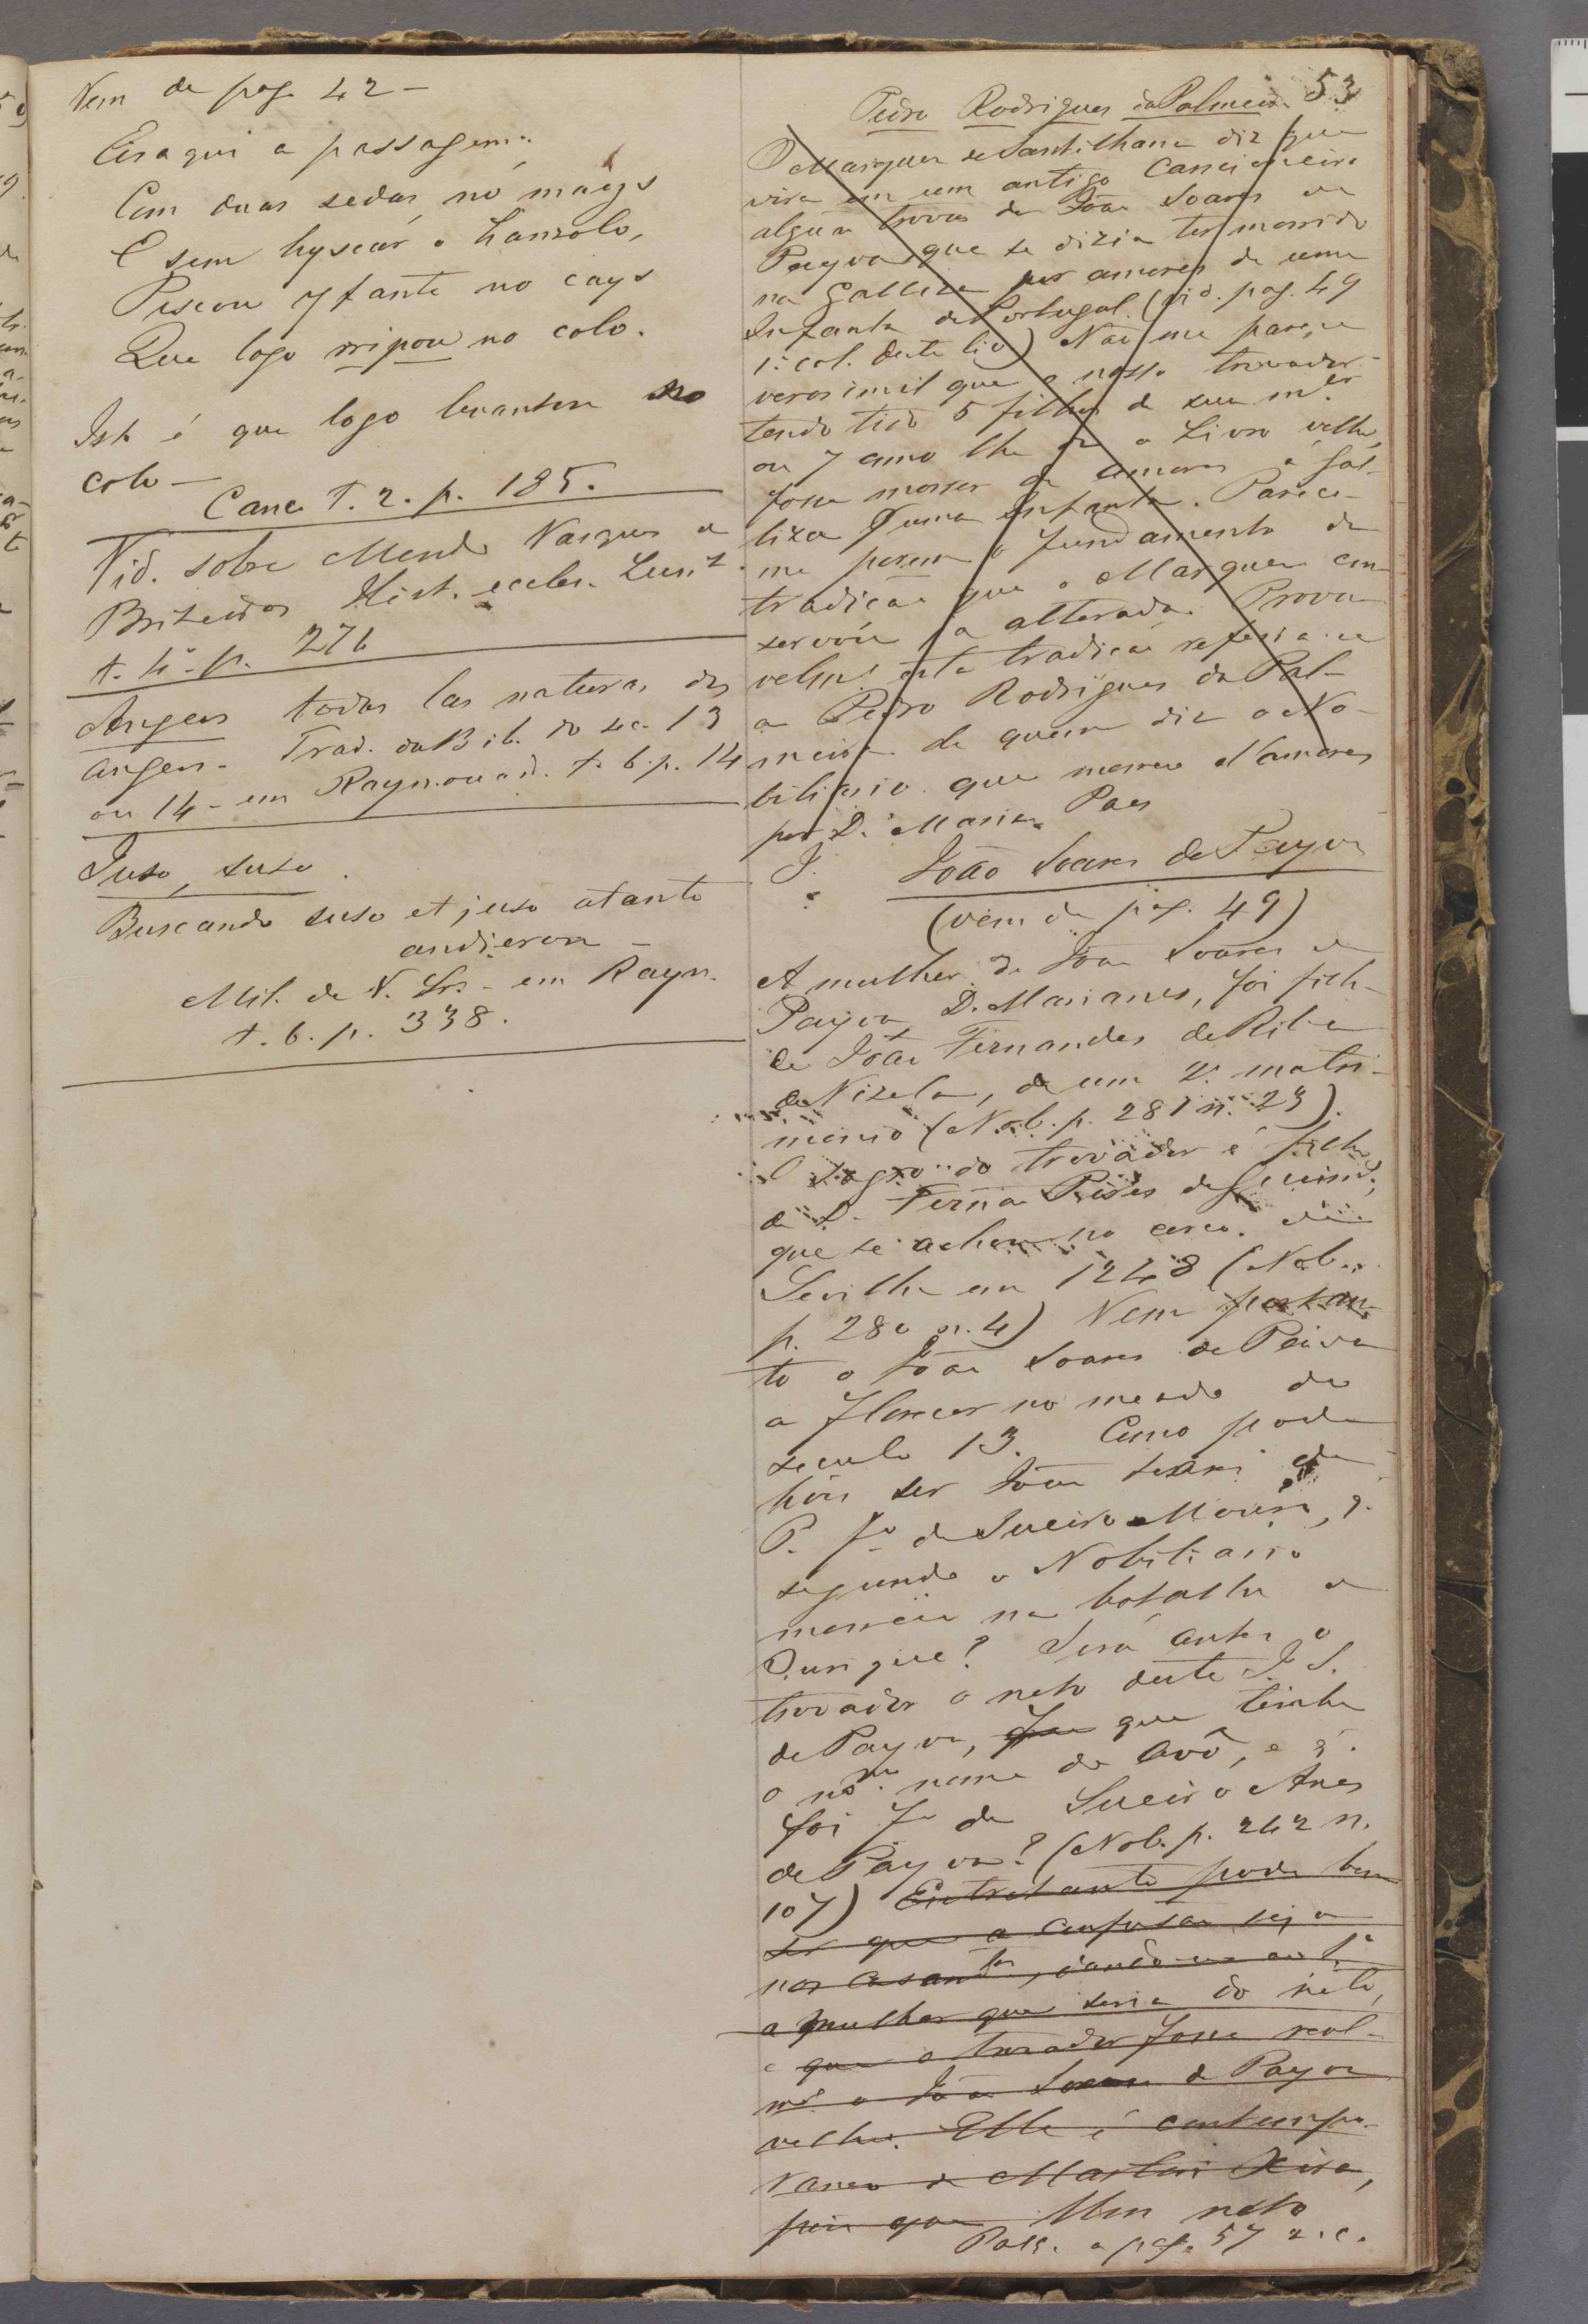 Vem da pag. 42 -
Eis aqui a passagem:
Com duas sedas, no mays
E sem hyscar o hanzolo,
Pescou yfante no cays
Que logo rripou no colo.
Isto é que logo levantou no
colo -
Canc. T. 2. p. 185.
Vid. sobre Mendo Vasques de
Briteiros Hist. eccles. Lus.
t. p. 276
Angeos todas las naturas dos
angeos - Trad. da Bib. do sec. 13
ou 14 - em Raynouard. t. 6. p. 14
Juso, suso
Buscando suso et juso atanto
andieron -
Mil. de N. Sr. - em Rayn.
t. 6. p. 338.
53
Pedro Rodrigues da Palmeira
O Marquez de Santilhana diz que
vira em um antigo Cancioneiro
algũas trovas de João Soares de
Payva que se dizia ter morrido
na Galliza por amores de uma
Infanta de Portugal. (vid. pag. 49
1ª col. deste liv) Não me parece
verosimil que o nosso trovador
tendo tido 5 filhos de sua mer.
ou 7 como lhe dá o Livro velho,
fosse morrer de amores á Gal-
liza d'uma Infanta. Parece-
me porem o fundamento da
tradição que o Marquez con-
servou já alterada. Prova-
velmte. esta tradição referia-se
a Pedro Rodrigues da Pal-
meira de quem diz o No-
biliario que morreo d'amores
por D. Maria Paes
J. João Soares de Payva
(vem da pag. 49)
A mulher de João Soares de
Payva, D. Mariannes, foi filha
de João Fernandes de Riba
de Vizela, de um 2º matri-
monio (Nob. p. 281 n. 23).
O sogro do trovador é filho
de D. Fernão Pires de Guimes,
que se achou no cerco de
Sevilha em 1248 (Nob.
p. 280 n. 4) Vem portan-
to o João Soares de Paiva
a florecer no meado do
seculo 13. Como pode
pois ser João Soares de
P. fº de Sueiro Mouro, q.
segundo o Nobiliario
morreu na batalha de
Ourique? Será antes o
trovador o neto deste J. S.
de Payva, que tinha
o mmo. nome do avô, e q.
foi fº de Sueiro Anes
de Payva? (Nob. p. 242 n.
107) Entretanto pode bem
ser que a confusão seja
nos casamtos, dando-se ao 1º
a mulher que seria do neto,
e que o trovador fosse real-
me o João Soares de Payva
velho. Elle é contempo-
raneo de Martim Xira,
pois que Um neto
Pass. a pag. 57 2. c.